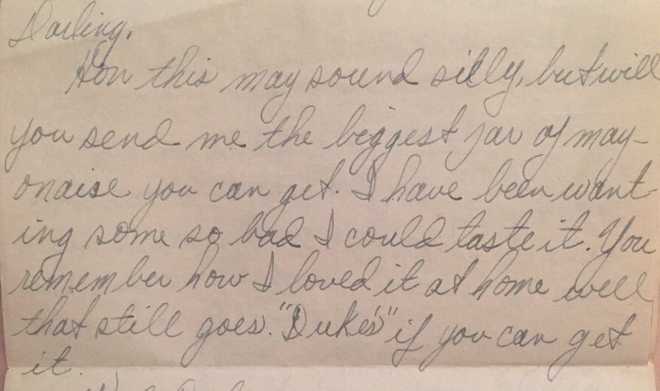 Darling,
Hon this may sound silly, but will
you send me the biggest jar of may-
onaise you can get. I have been want-
ing some so bad I could taste it. You
remember how I loved it at home well
that still goes. "Duke's" if you can get
it.